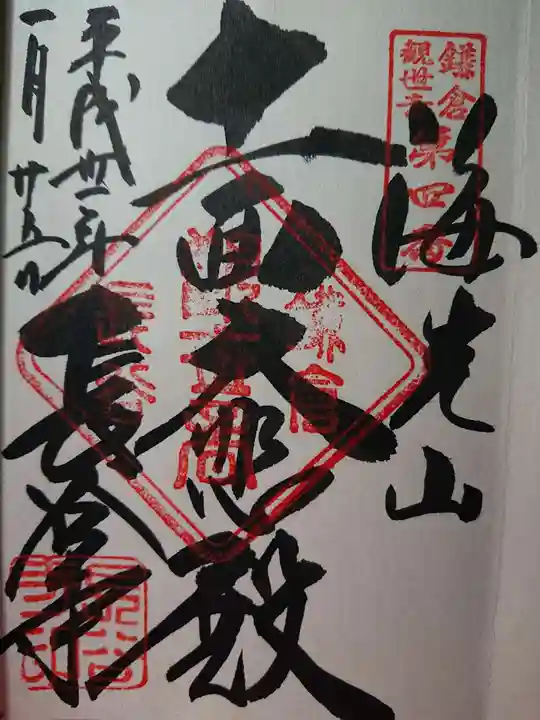 鎌倉
観世音
第四番
海光山
十一面大悲殿
平成卅一年
一月廿五日
長谷寺